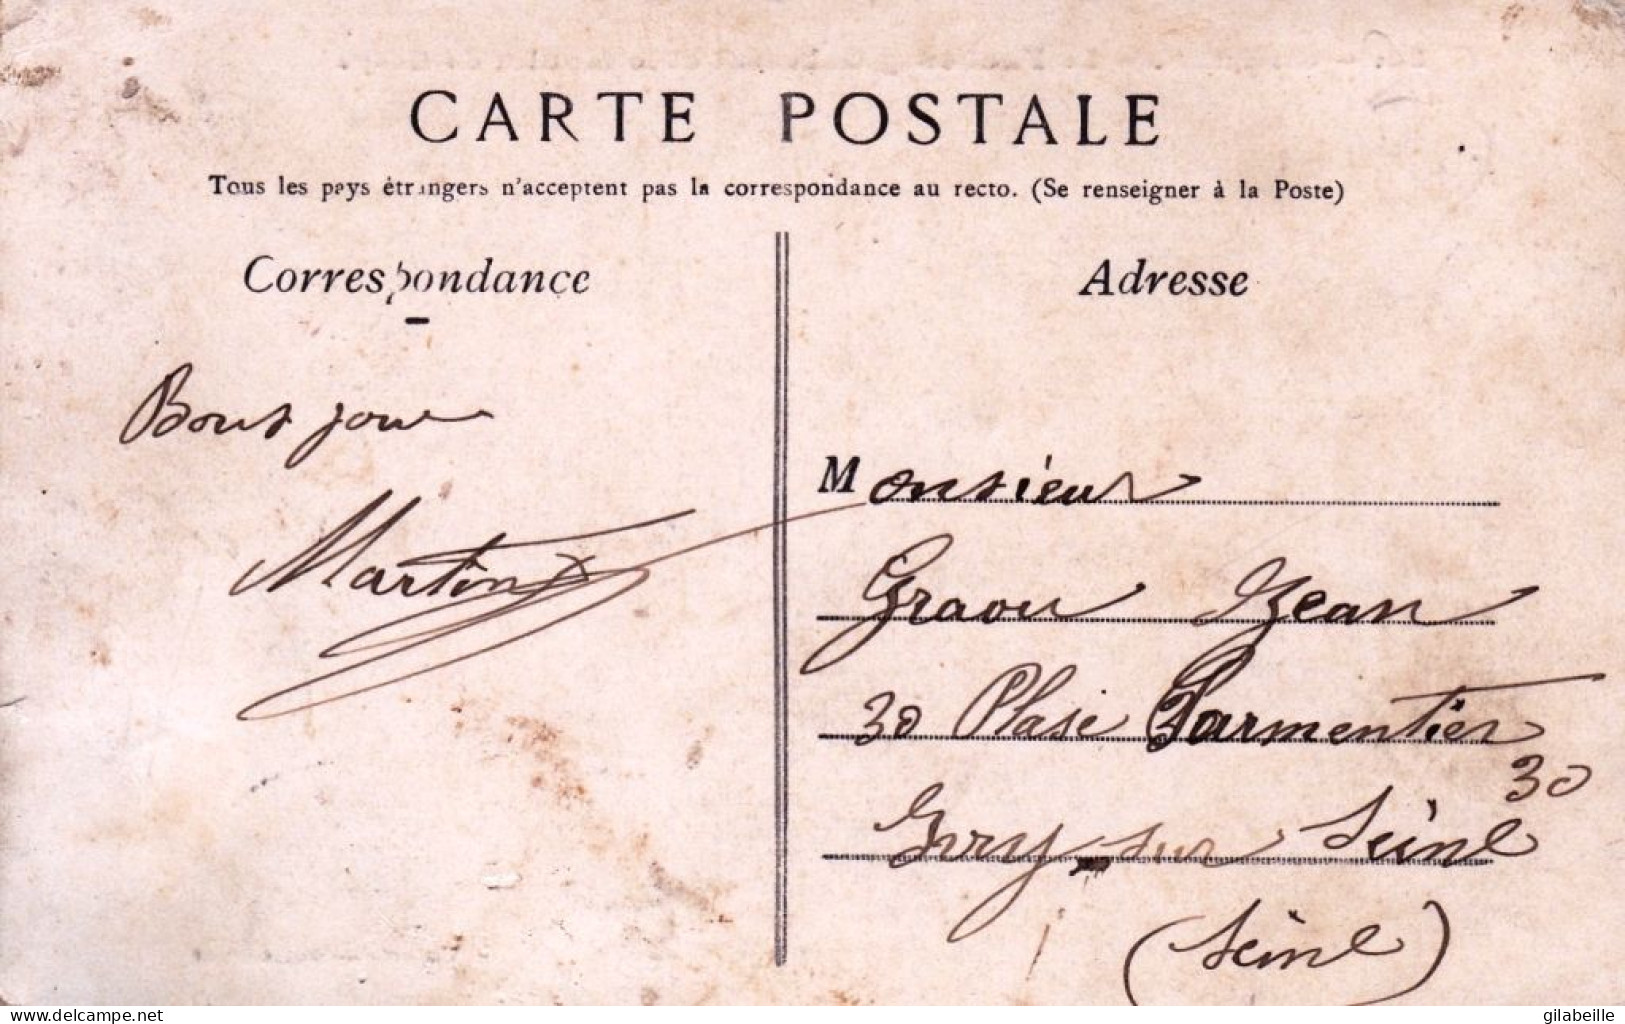 CARTE POSTALE
Tous les pays étrangers n'acceptent pas la correspondance au recto. (Se renseigner à la Poste)
Correspondance
Bons jour
Martin
Adresse
Monsieur
Graou Jean
30 Plase Parmentier
30
Ivry-sur Seine
(Seine)
www.delcampe.net
gilabeille